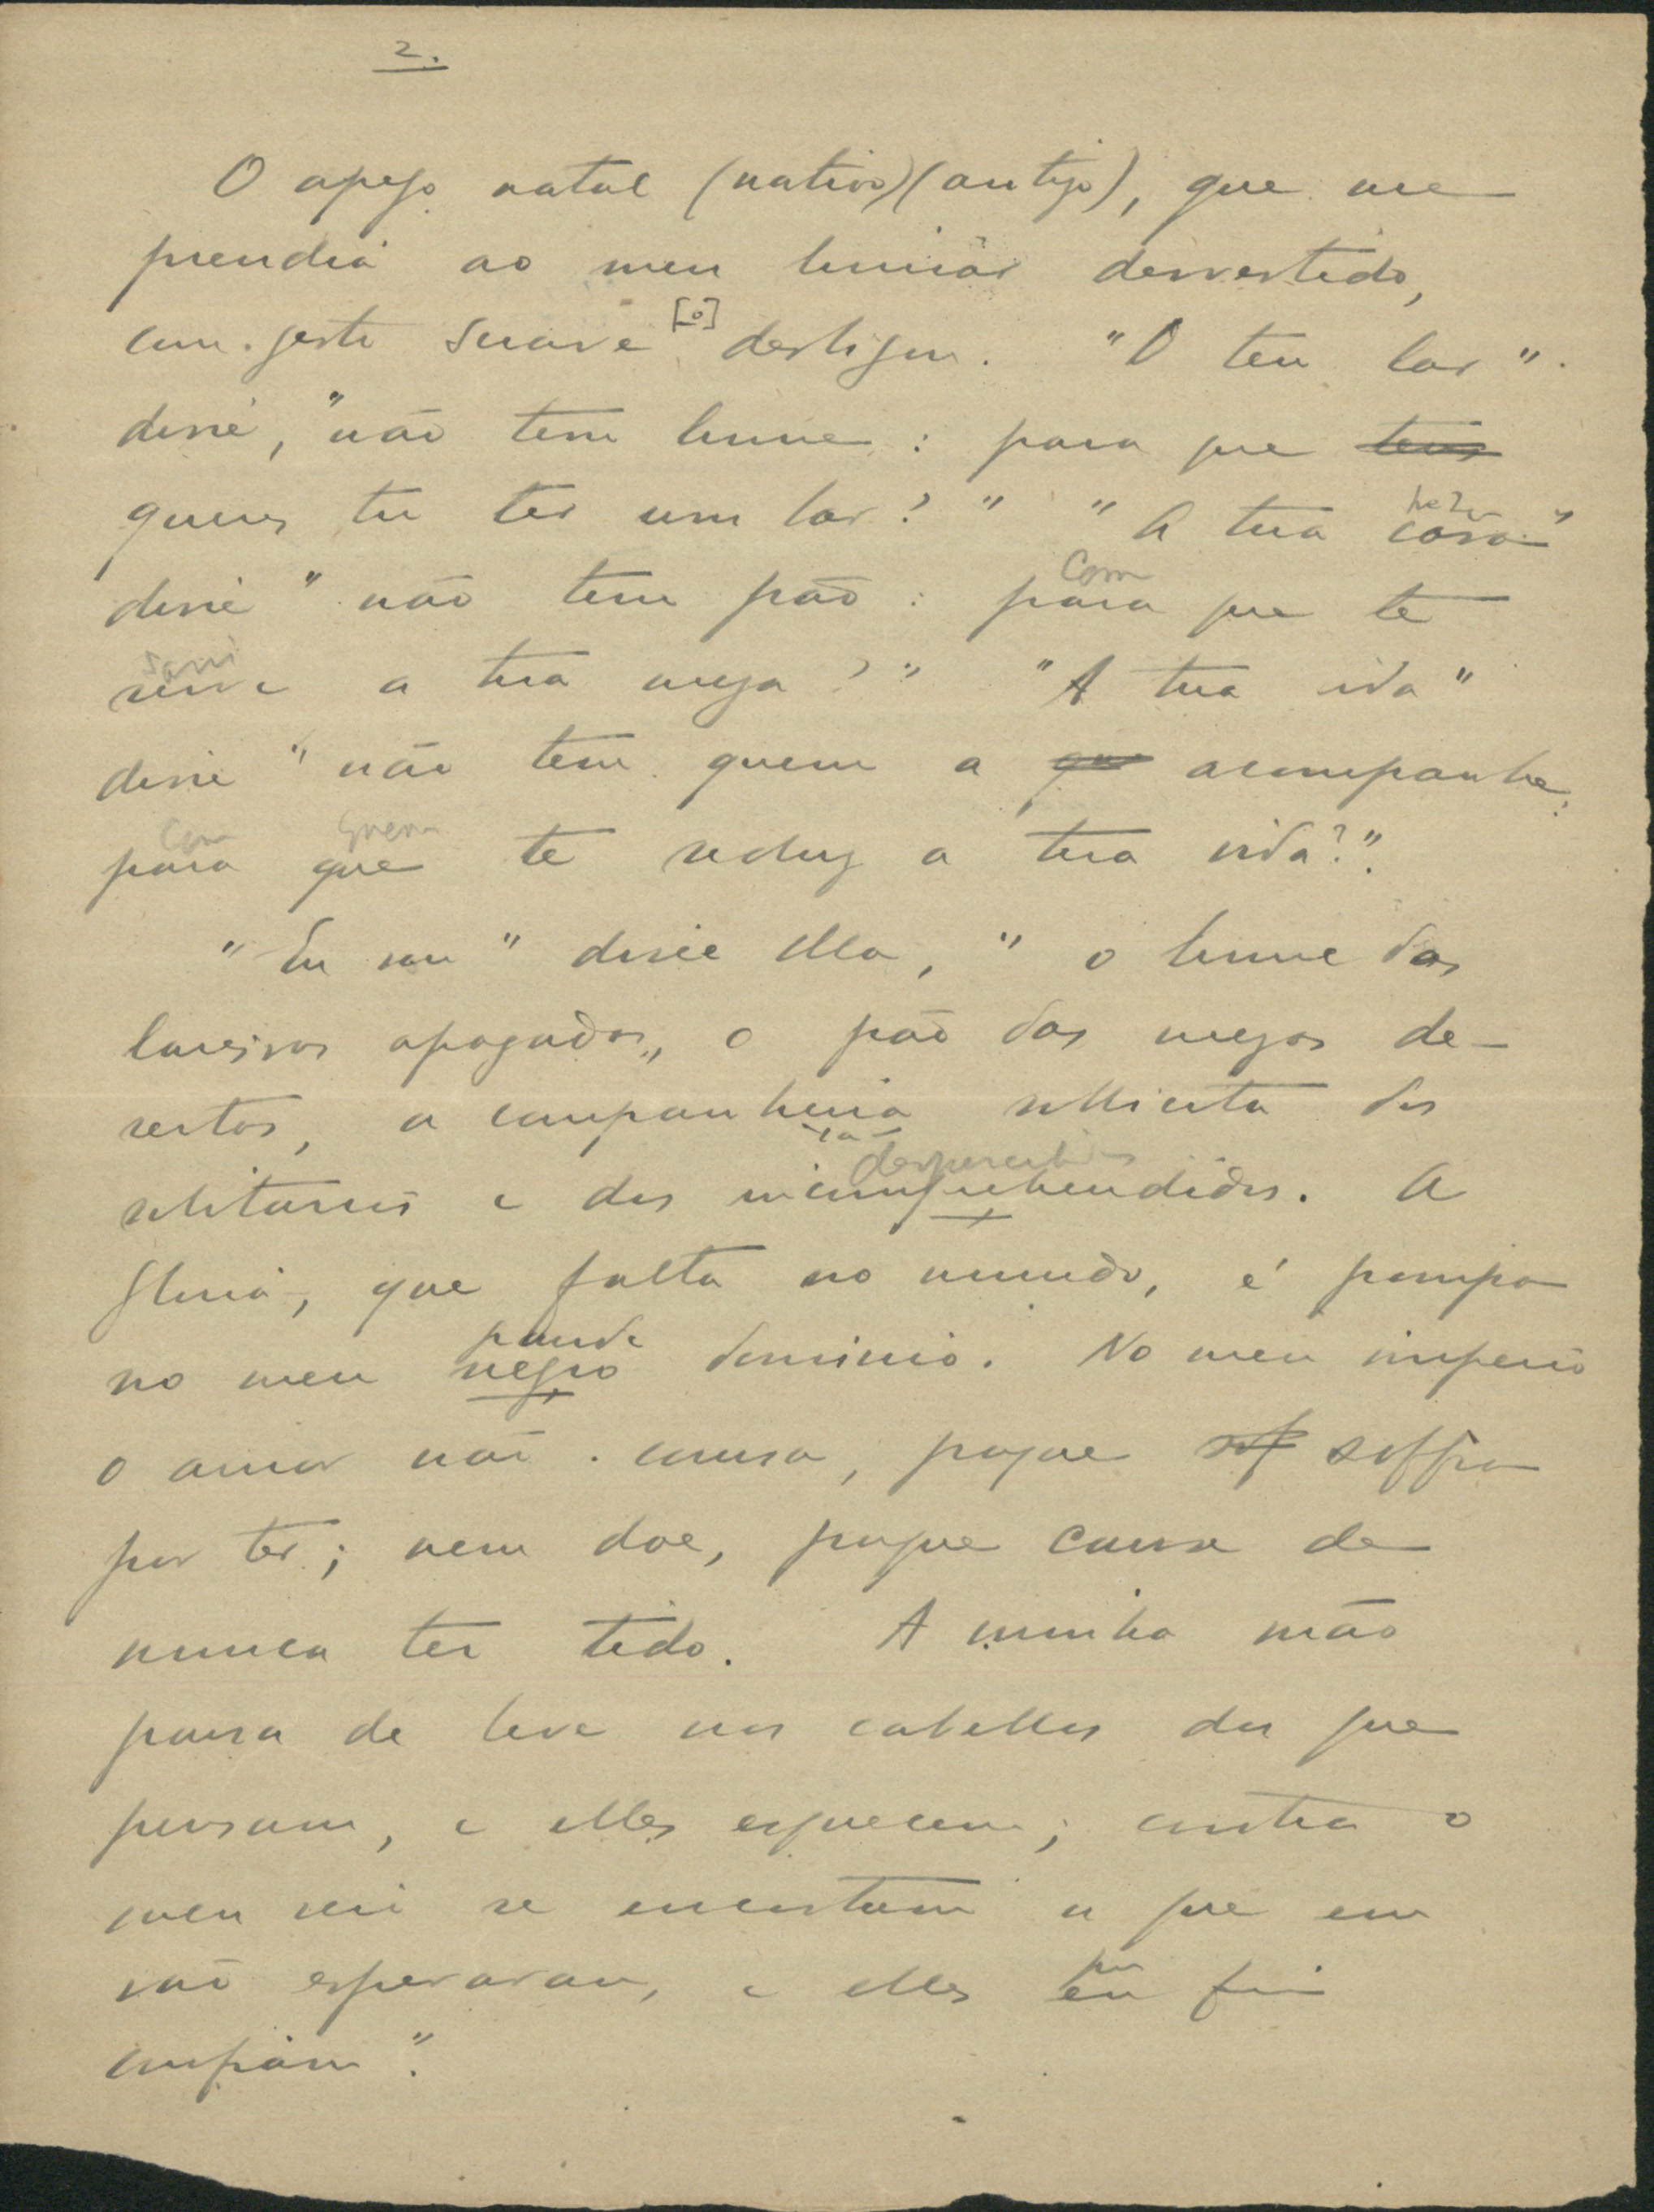 2.
O apego natal (nativo) (antigo), que me
prendia ao meu limiar desvestido,
com gesto suave [o] desligou. "O teu lar"
disse, "não tem lume: para que tens
queres tu ter um lar?" "A tua casa"
disse "não tem pão: para que te
Com
serve a tua meza?" "A tua vida"
disse "não tem quem a que acompanhe:
Com quem
para que te seduz a tua vida?".
"Eu sou" disse ella, "o lume das
lareiras apagadas, o pão das mezas de-
sertas, a companheira sollicita dos
solitarios e dos incomprehendidos. A
gloria, que falta no mundo, é pompa
no meu negro dominio. No meu imperio
o amor não cansa, porque sof soffra
por ter; nem doe, porque canse de
nunca ter tido. A minha mão
pousa de leve nos cabellos dos que
pensam, e elles esquecem; contra o
meu seio se encostam os que em
vão esperaram, e elles em fim
por
confiam".